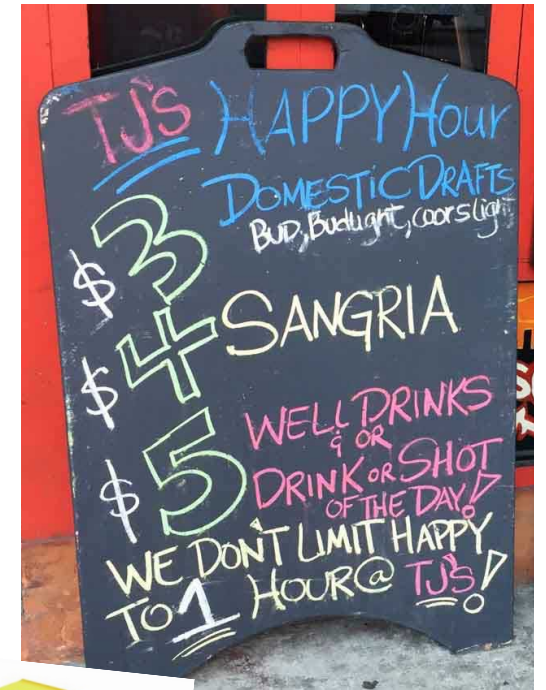 TJ's HAPPY Hour
$3 DOMESTIC DRAFTS
BUD, Budlight, coors light
$4 SANGRIA
$5 WELL DRINKS
& OR
DRINK OR SHOT
OF THE DAY!
WE DON'T LIMIT HAPPY
TO 1 HOUR @ TJ'S!